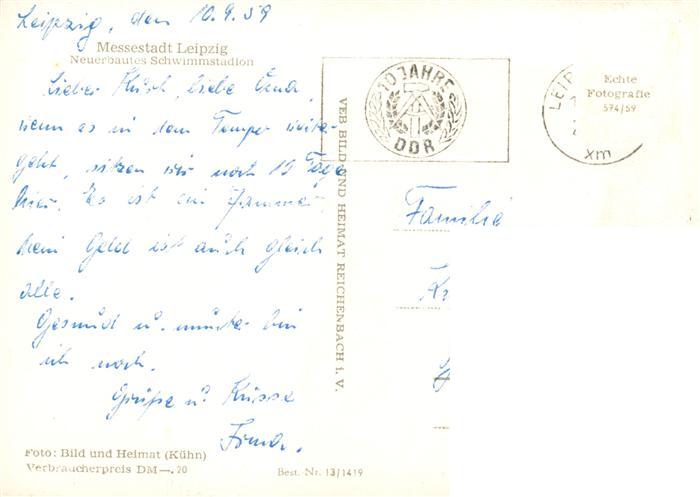 Leipzig, den 10.9.59
Messestadt Leipzig
Neuerbautes Schwimmstadion
Lieber Kurt, liebe Erna,
wenn es in dem Tempo weiter
geht, sitzen wir noch 10 Tage
hier. Es ist ein Jammer
kein Geld ist auch gleich
alle.
Gesund u. munter bin
ich noch.
Grüße u. Küsse
Foto: Bild und Heimat (Kühn)
Verbraucherpreis DM —.20
Best. Nr. 13/1419
VEB BILD UND HEIMAT REICHENBACH i. V.
10 JAHRE
DDR
LEIP
xm
Echte
Fotografie
574/59
Familie